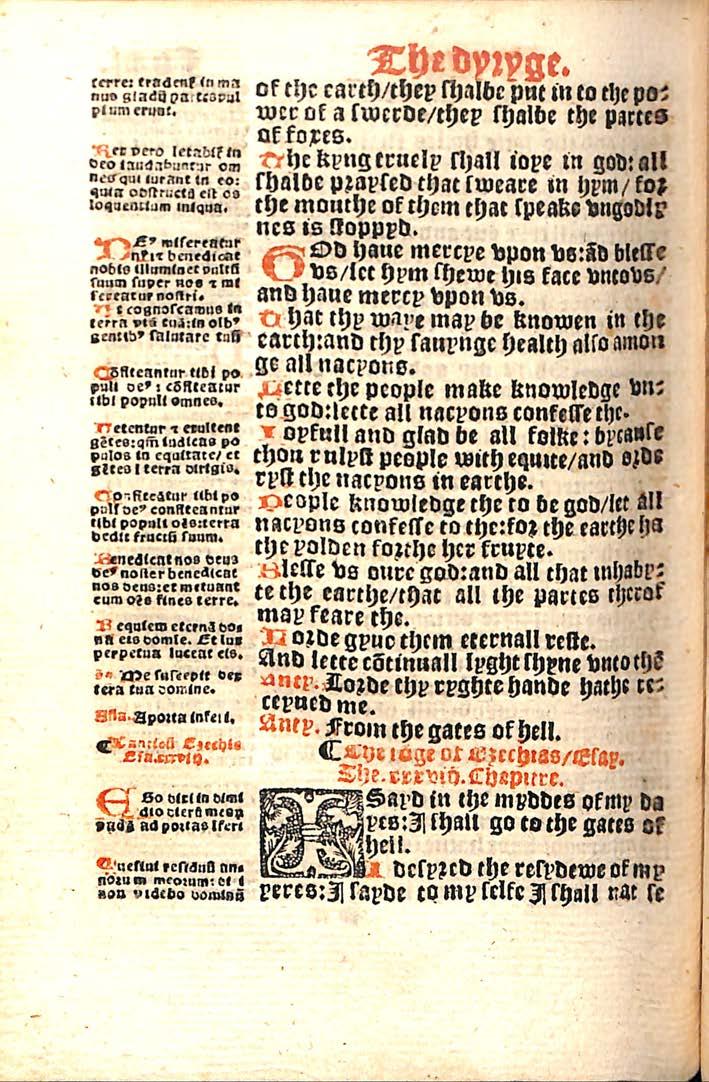 The dyryge.
terre: tradent̃ in ma
nus gladij partes vul
pium erunt.
Rex vero letabit̃ in
deo laudabuntur om
nes qui iurant in eo:
quia obstructū est os
loquentium iniqua.
DEꝰ misereatur
nr̄i ⁊ benedicat
nobis illuminet vultū
suum super nos ⁊ mi
sereatur nostri.
Ut cognoscamus in
terra viā tuā: in oĩbꝰ
gentibꝰ salutare tuū
Cōfiteantur tibi po
puli deꝰ: cōfiteātur
tibi populi omnes.
Letentur ⁊ exultent
gētes: qm̄ iudicas po
pulos in equitate/ et
gētes ī terra dirigis.
Confiteātur tibi po
puli deꝰ confiteantur
tibi populi oēs: terra
dedit fructū suum.
Benedicat nos deus
deꝰ noster benedicat
nos deus: et metuant
eum oēs fines terre.
Requiem eternā do⸗
nā eis domie. Et lux
perpetua luceat eis.
añ. Me suscepit dex
tera tua domine.
Aña. A porta inferi.
¶ Canticū Ezechie
Esa. xxxviij.
EGo dixi in dimi
dio dierū meoꝝ
vadā ad portas īferi
Quesiui residuū an⸗
norum meorum: dixi
non videbo dominū
of the earth/they shalbe put in to the po⸗
wer of a swerde/they shalbe the partes
of foxes.
The kyng truely shall ioye in god: all
shalbe praysed that sweare in hym/ for
the mouthe of them that speake vngodly
nes is stoppyd.
GOd haue mercye vpon vs: ād blesse
vs/let hym shewe his face vnto vs/
and haue mercy vpon vs.
That thy waye may be knowen in the
earth: and thy sauynge health also amon
ge all nacyons.
Lette the people make knowledge vn⸗
to god: lette all nacyons confesse the.
Ioyfull and glad be all folke: bycause
thou rulyst people with equite/and orde
ryst the nacyons in earthe.
People knowledge the to be god/let all
nacyons confesse to the: for the earthe ha
the yolden forthe her fruyte.
Blesse vs oure god: and all that inhaby⸗
te the earthe/that all the partes therof
may feare the.
Lorde gyue them eternall reste.
And lette cōtinuall lyght shyne vnto thē
Anty. Lorde thy ryghte hande hathe re⸗
ceyued me.
Anty. From the gates of hell.
¶ The sōge of Ezechias/Esay.
The. xxxviij. Chapitre.
I Sayd in the myddes of my da
yes: I shall go to the gates of
hell.
I desyred the resydewe of my
yeres: I sayde to my selfe I shall nat se